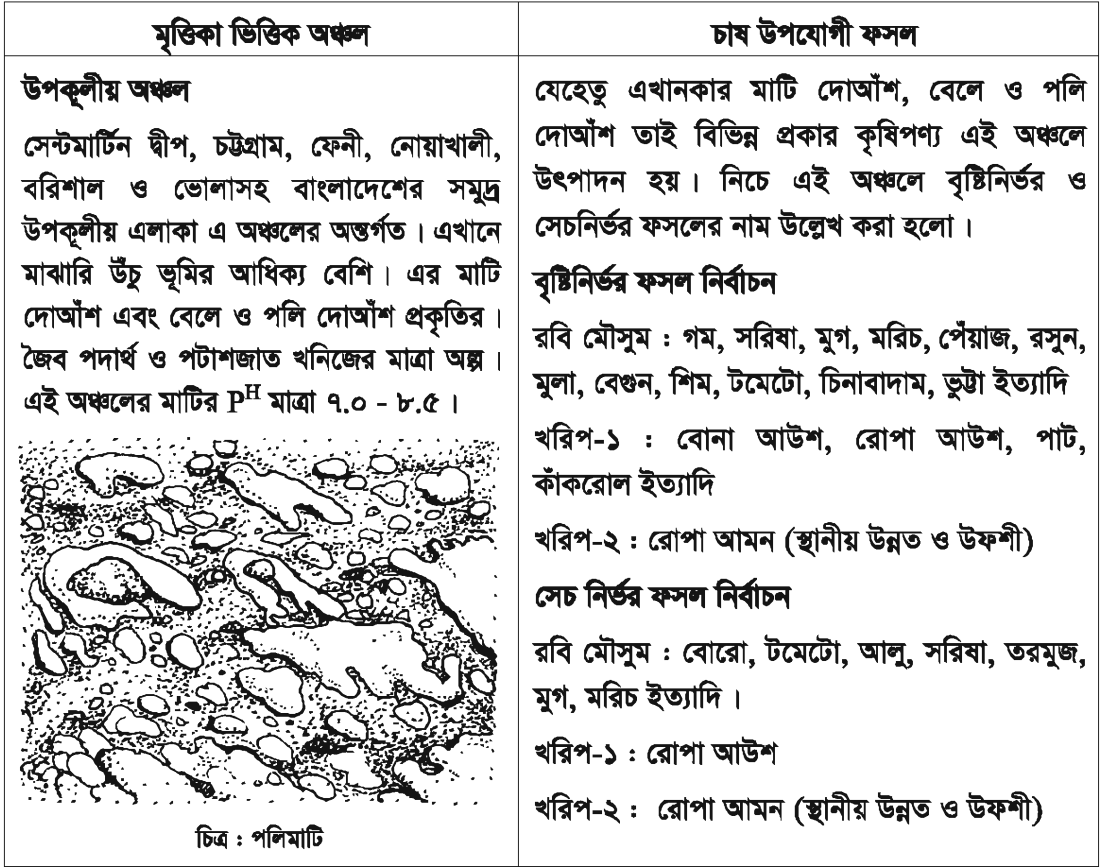 মৃত্তিকা ভিত্তিক অঞ্চল
উপকূলীয় অঞ্চল
সেন্টমার্টিন দ্বীপ, চট্টগ্রাম, ফেনী, নোয়াখালী,
বরিশাল ও ভোলাসহ বাংলাদেশের সমুদ্র
উপকূলীয় এলাকা এ অঞ্চলের অন্তর্গত । এখানে
মাঝারি উঁচু ভূমির আধিক্য বেশি । এর মাটি
দোআঁশ এবং বেলে ও পলি দোআঁশ প্রকৃতির ।
জৈব পদার্থ ও পটাশজাত খনিজের মাত্রা অল্প ।
এই অঞ্চলের মাটির Pᴴ মাত্রা ৭.০ - ৮.৫ ।
চিত্র : পলিমাটি
চাষ উপযোগী ফসল
যেহেতু এখানকার মাটি দোআঁশ, বেলে ও পলি
দোআঁশ তাই বিভিন্ন প্রকার কৃষিপণ্য এই অঞ্চলে
উৎপাদন হয় । নিচে এই অঞ্চলে বৃষ্টিনির্ভর ও
সেচনির্ভর ফসলের নাম উল্লেখ করা হলো ।
বৃষ্টিনির্ভর ফসল নির্বাচন
রবি মৌসুম : গম, সরিষা, মুগ, মরিচ, পেঁয়াজ, রসুন,
মুলা, বেগুন, শিম, টমেটো, চিনাবাদাম, ভুট্টা ইত্যাদি
খরিপ-১ : বোনা আউশ, রোপা আউশ, পাট,
কাঁকরোল ইত্যাদি
খরিপ-২ : রোপা আমন (স্থানীয় উন্নত ও উফশী)
সেচ নির্ভর ফসল নির্বাচন
রবি মৌসুম : বোরো, টমেটো, আলু, সরিষা, তরমুজ,
মুগ, মরিচ ইত্যাদি ।
খরিপ-১ : রোপা আউশ
খরিপ-২ : রোপা আমন (স্থানীয় উন্নত ও উফশী)